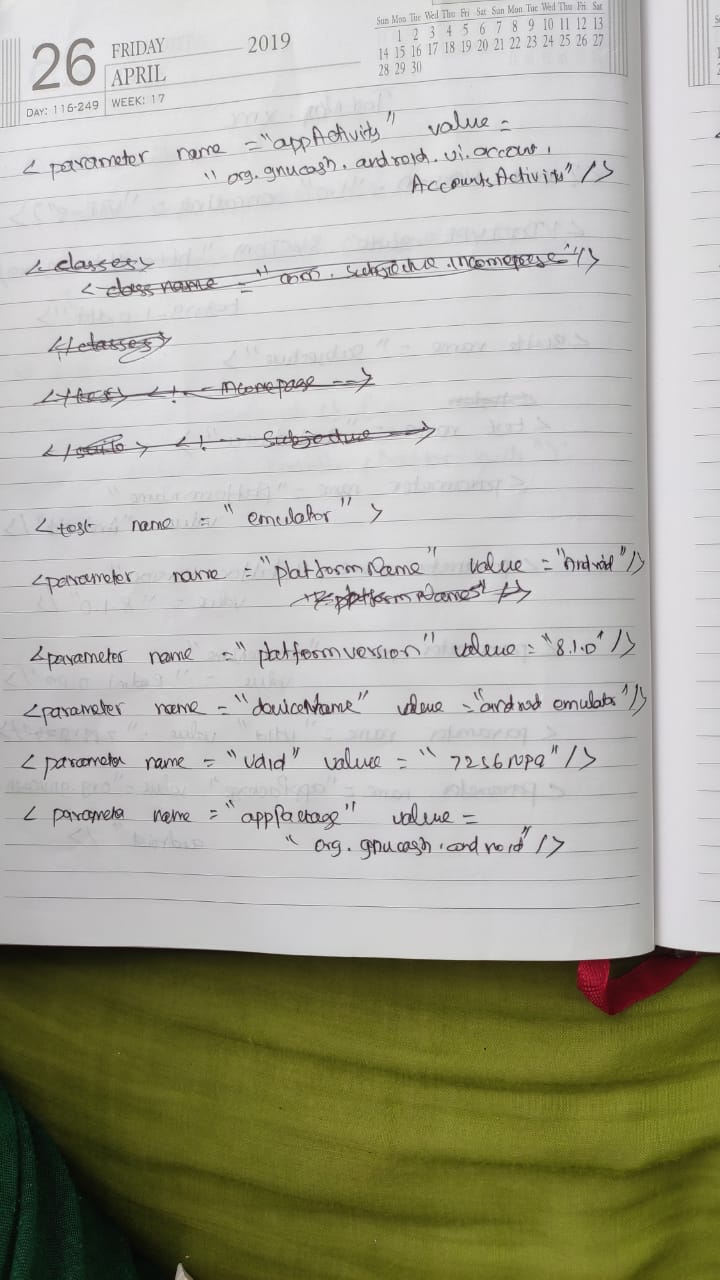 26 FRIDAY 2019
APRIL
DAY: 116-249 WEEK: 17
Sun Mon Tue Wed Thu Fri Sat Sun Mon Tue Wed Thu Fri Sat
1 2 3 4 5 6 7 8 9 10 11 12 13
14 15 16 17 18 19 20 21 22 23 24 25 26 27
28 29 30
< parameter name = "appActivity" value =
" org.gnucash.android.ui.account.
AccountsActivity" />
<classes>
< class name = " com. />
</classes>
</test> <!-- -->
</suite> <!-- -->
<test name = " emulator" >
<parameter name = "platformName" value = "Android" />
platformName" />
<parameter name = " platformversion" value = "8.1.0" />
<parameter name = "deviceName" value = "android emulator" />
< parameter name = "udid" value = " />
< parameter name = "appPackage" value =
" org.gnucash.android" />